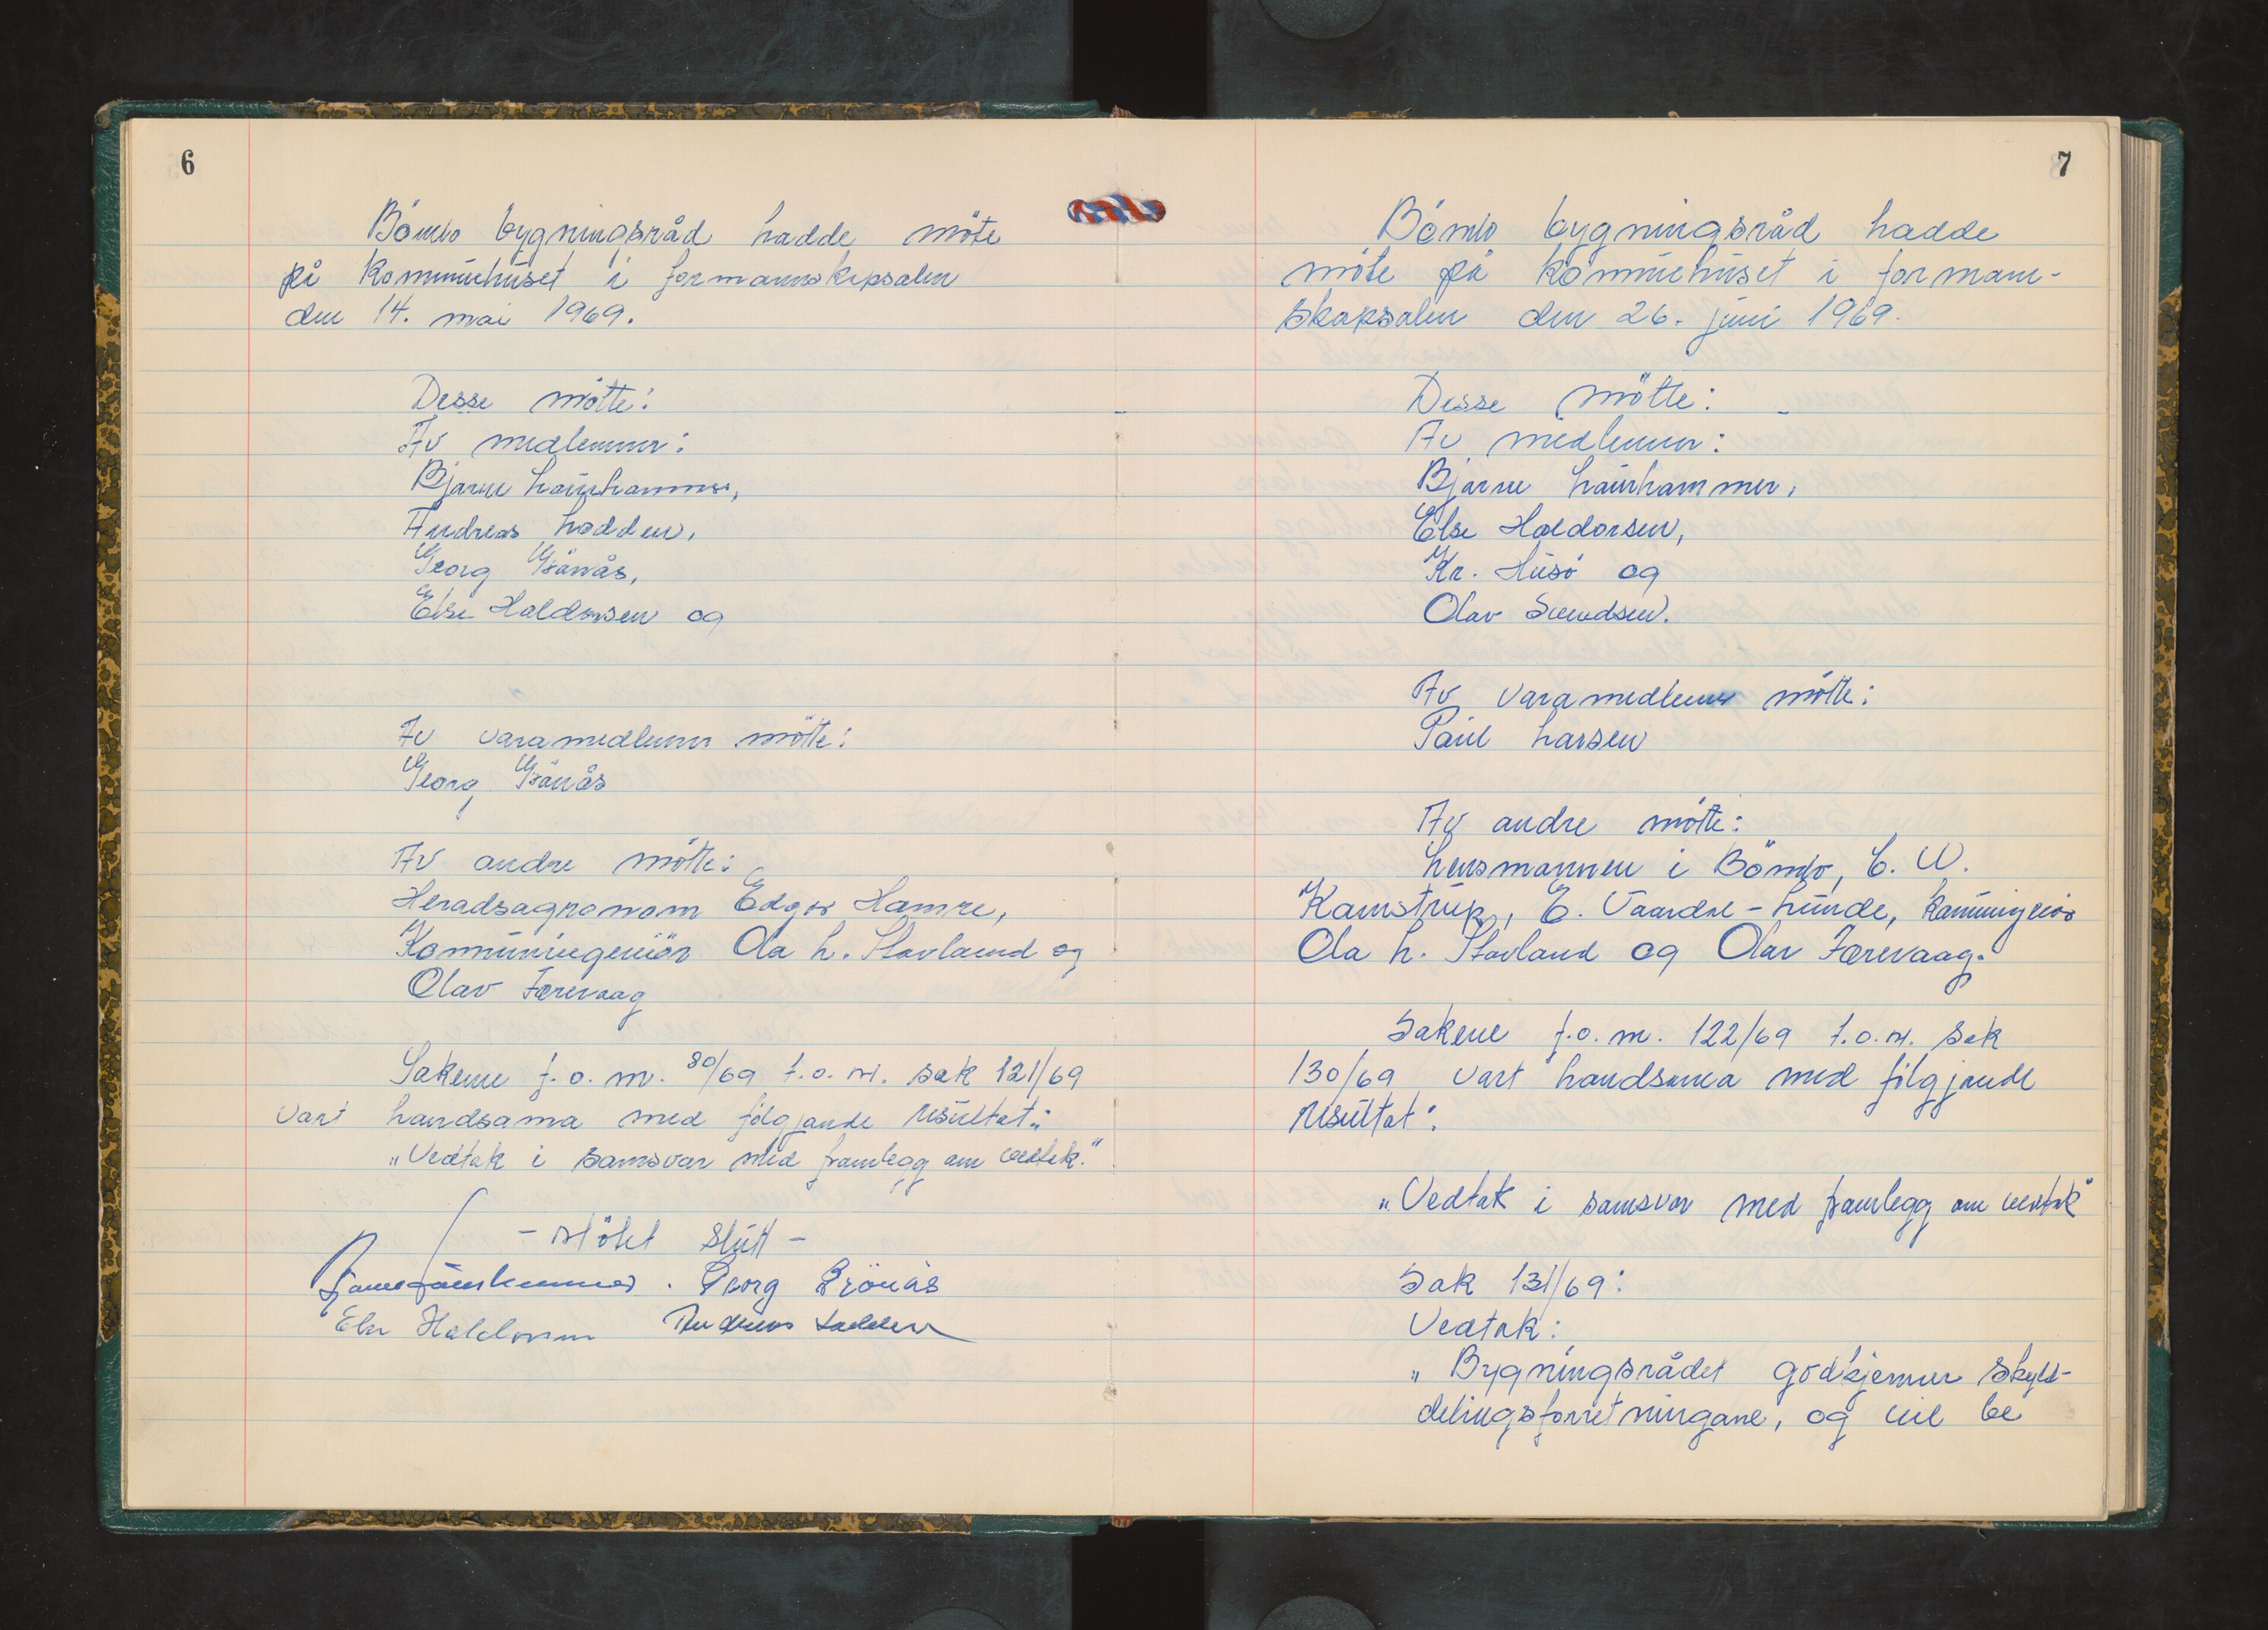 6
Bömlo bygningsråd hadde möte
på kommunehuset i formannskapsalen
den 14. mai 1969.
Desse mötte:
Av medlemmer:
Bjarne Laurhammer,
Andreas Lodden,
Georg Grönås,
Else Haldorsen og
Av varamedlemmer mötte:
Georg Grönås
Av andre mötte:
Heradsagronom Edgar Hamre,
Kommuningeniör Ola L. Stavland og
Olav Færevaag
Sakene f.o.m. 80/69 t.o.m. sak 121/69
vart handsama med fölgjande resultat:
"Vedtak i samsvar med framlegg om vedtak."
- Mötet slutt -
Georg Grönås
Else Haldorsen Andreas Lodden
7
Bömlo bygningsråd hadde
möte på kommunehuset i formann-
skapsalen den 26. juni 1969.
Desse mötte:
Av medlemmer:
Bjarne Laurhammer,
Else Haldorsen,
Kr. Husö og
Olav Svendsen.
Av varamedlemmer mötte:
Paul Larsen
Av andre mötte:
Lensmannen i Bömlo, C. W.
Kamstrup, E. Vaardal-Lunde, komm.ingeniör
Ola L. Stavland og Olav Færevaag.
Sakene f.o.m. 122/69 t.o.m. sak
130/69 vart handsama med fölgjande
resultat:
"Vedtak i samsvar med framlegg om vedtak"
Sak 131/69:
Vedtak:
"Bygningsrådet godkjenner skyld-
delingsforretningane, og vil be